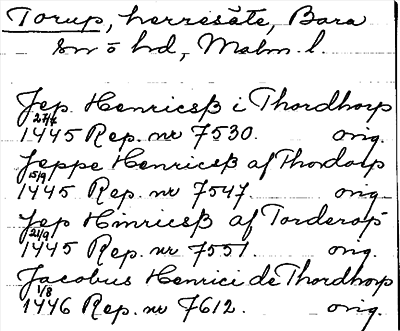 Torup, herresäte, Bara
sn o hd, Malm. l.
Jep. Henricsß i Thordhorp
27/7
1445 Rep. nr 7530. orig.
Jeppe Henricsß af Thordorp
15/9
1445 Rep. nr 7547. orig.
Jep Hinricsß af Torderop
21/9
1445 Rep. nr 7551. orig.
Jacobus Henrici de Thordhorp
1/8
1446 Rep. nr 7612. orig.